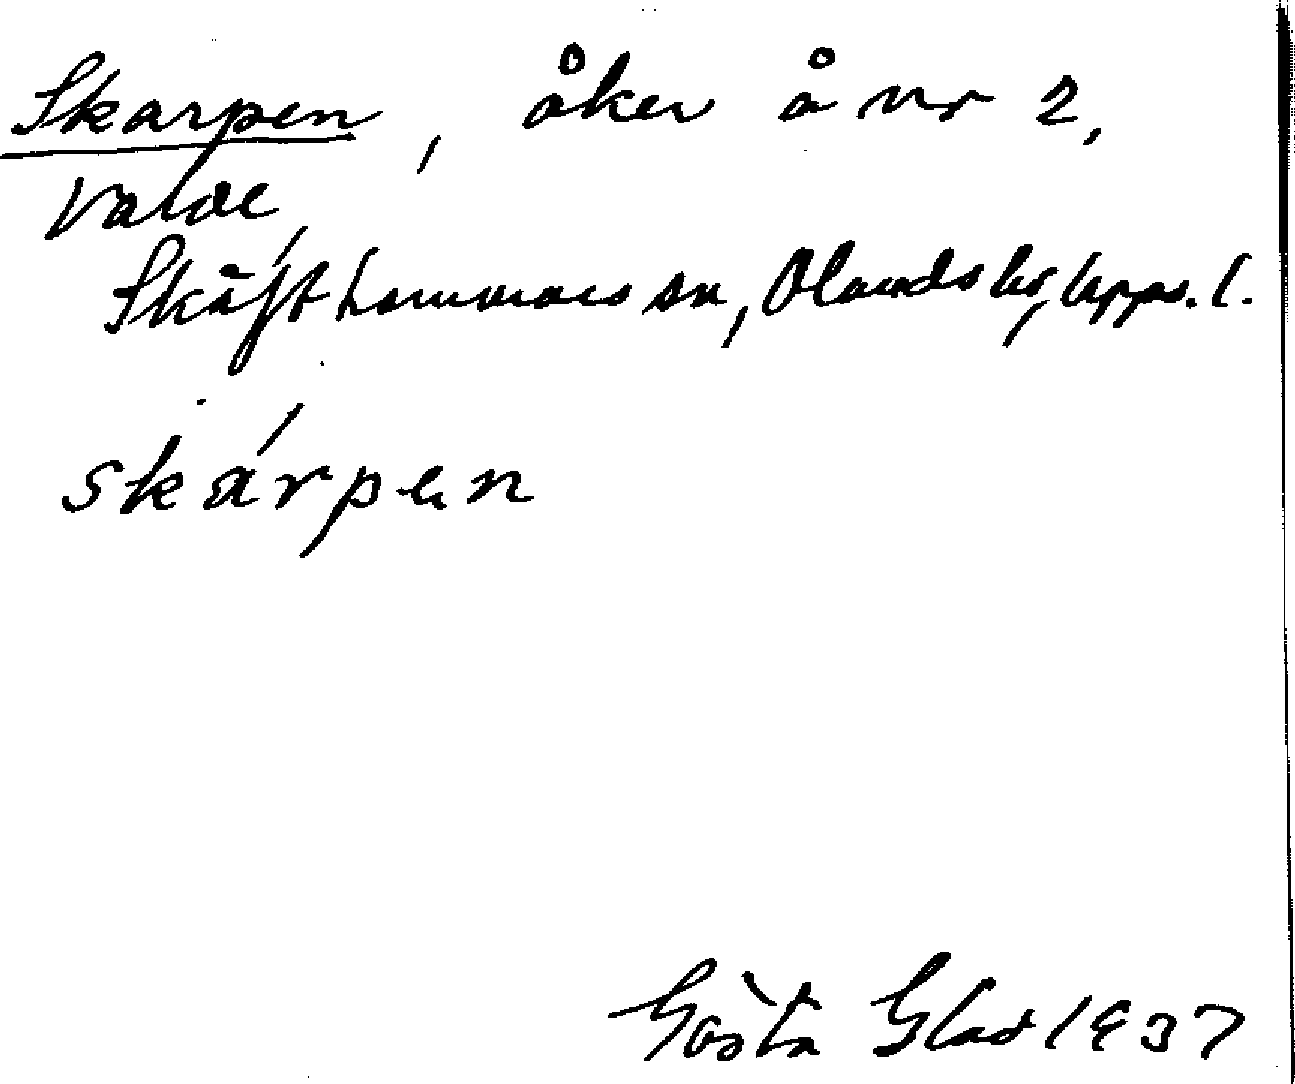 Skarpen, åker å nr 2,
Valde,
Skäfthammars sn, Olands hd, Upps. l.
skárpen
Gösta Glad 1937